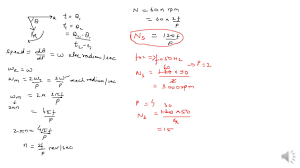 θ
t₁ = θ₁
t₂ = θ₂
= θ₂ - θ₁
t₂ - t₁
speed = dθ/dt = ω elec radian/sec
ωe = ω
ωm = 2ωe/P = 2ω/P mech radian/sec
ωm = 2 × 2πf/P
2πn
= 4πf/P
2πn = 4πf/P
n = 2f/P rev/sec
N = 60 n rpm
= 60 × 2f/P
Ns = 120f/P
for f = 50Hz
P = 2
Ns = 120 × 50/2
= 3000 rpm
P = 4
Ns = 120 × 50/4
= 15